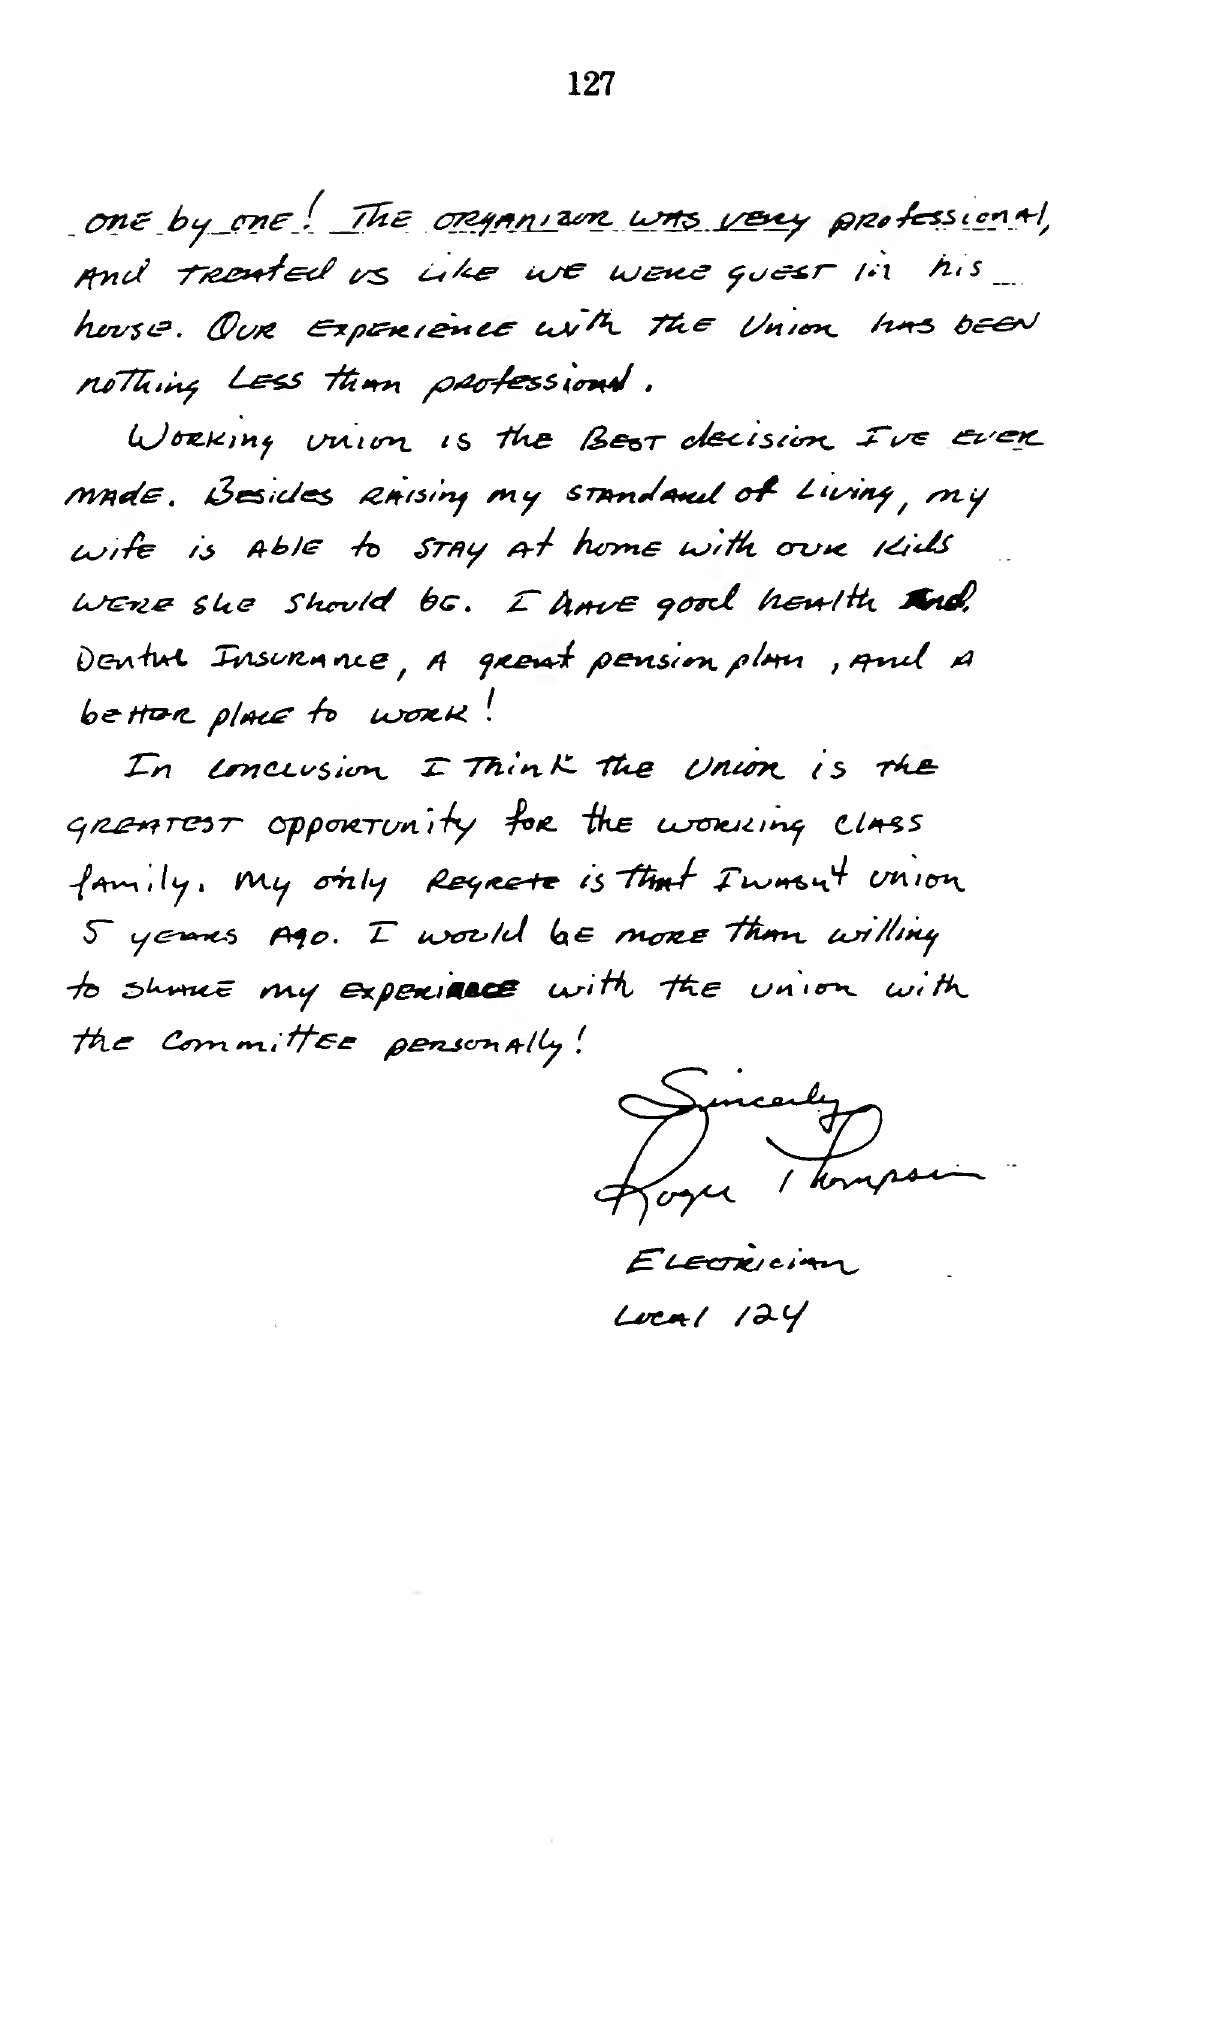 127
one by one! The organizor was very professional,
And treated us like we were guest in his
house. Our experience with the Union has been
nothing Less than professional.
Working union is the Best decision I've ever
made. Besides raising my standard of Living, my
wife is Able to stay At home with our kids
were she should be. I have good health and
Dental Insurance, A great pension plan, and a
better place to work!
In conclusion I think the Union is the
greatest opportunity for the working class
family. My only Regrete is that I wasn't union
5 years Ago. I would be more than willing
to share my experience with the union with
the Committee personally!
Sincerly
Roger Thompson
Electrician
Local 124